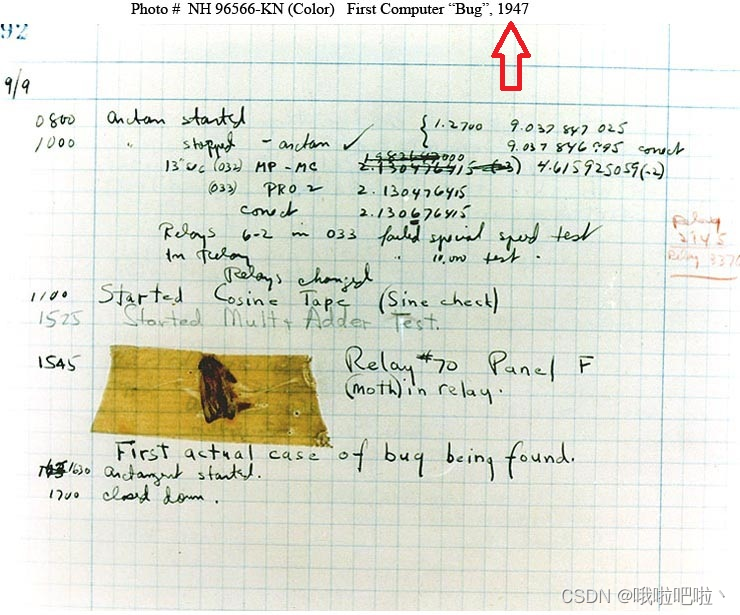 Photo # NH 96566-KN (Color) First Computer “Bug”, 1947
92
9/9
0800 Antan started
1000 " stopped - antan ✓ { 1.2700 9.037 847 025
9.037 846 995 conect
13"uc (032) MP - MC 2.130476415 (-3) 4.615925059(-2)
(033) PRO 2 2.130476415
conect 2.130676415
Relays 6-2 in 033 failed special speed test
In Relay " 10,000 test .
Relays changed
1100 Started Cosine Tape (Sine check)
1525 Started Mult+ Adder Test.
1545 Relay #70 Panel F
(moth) in relay.
First actual case of bug being found.
1630 antangent started.
1700 closed down .
Relay
2145
Relay 3370
CSDN @哦啦吧啦丶